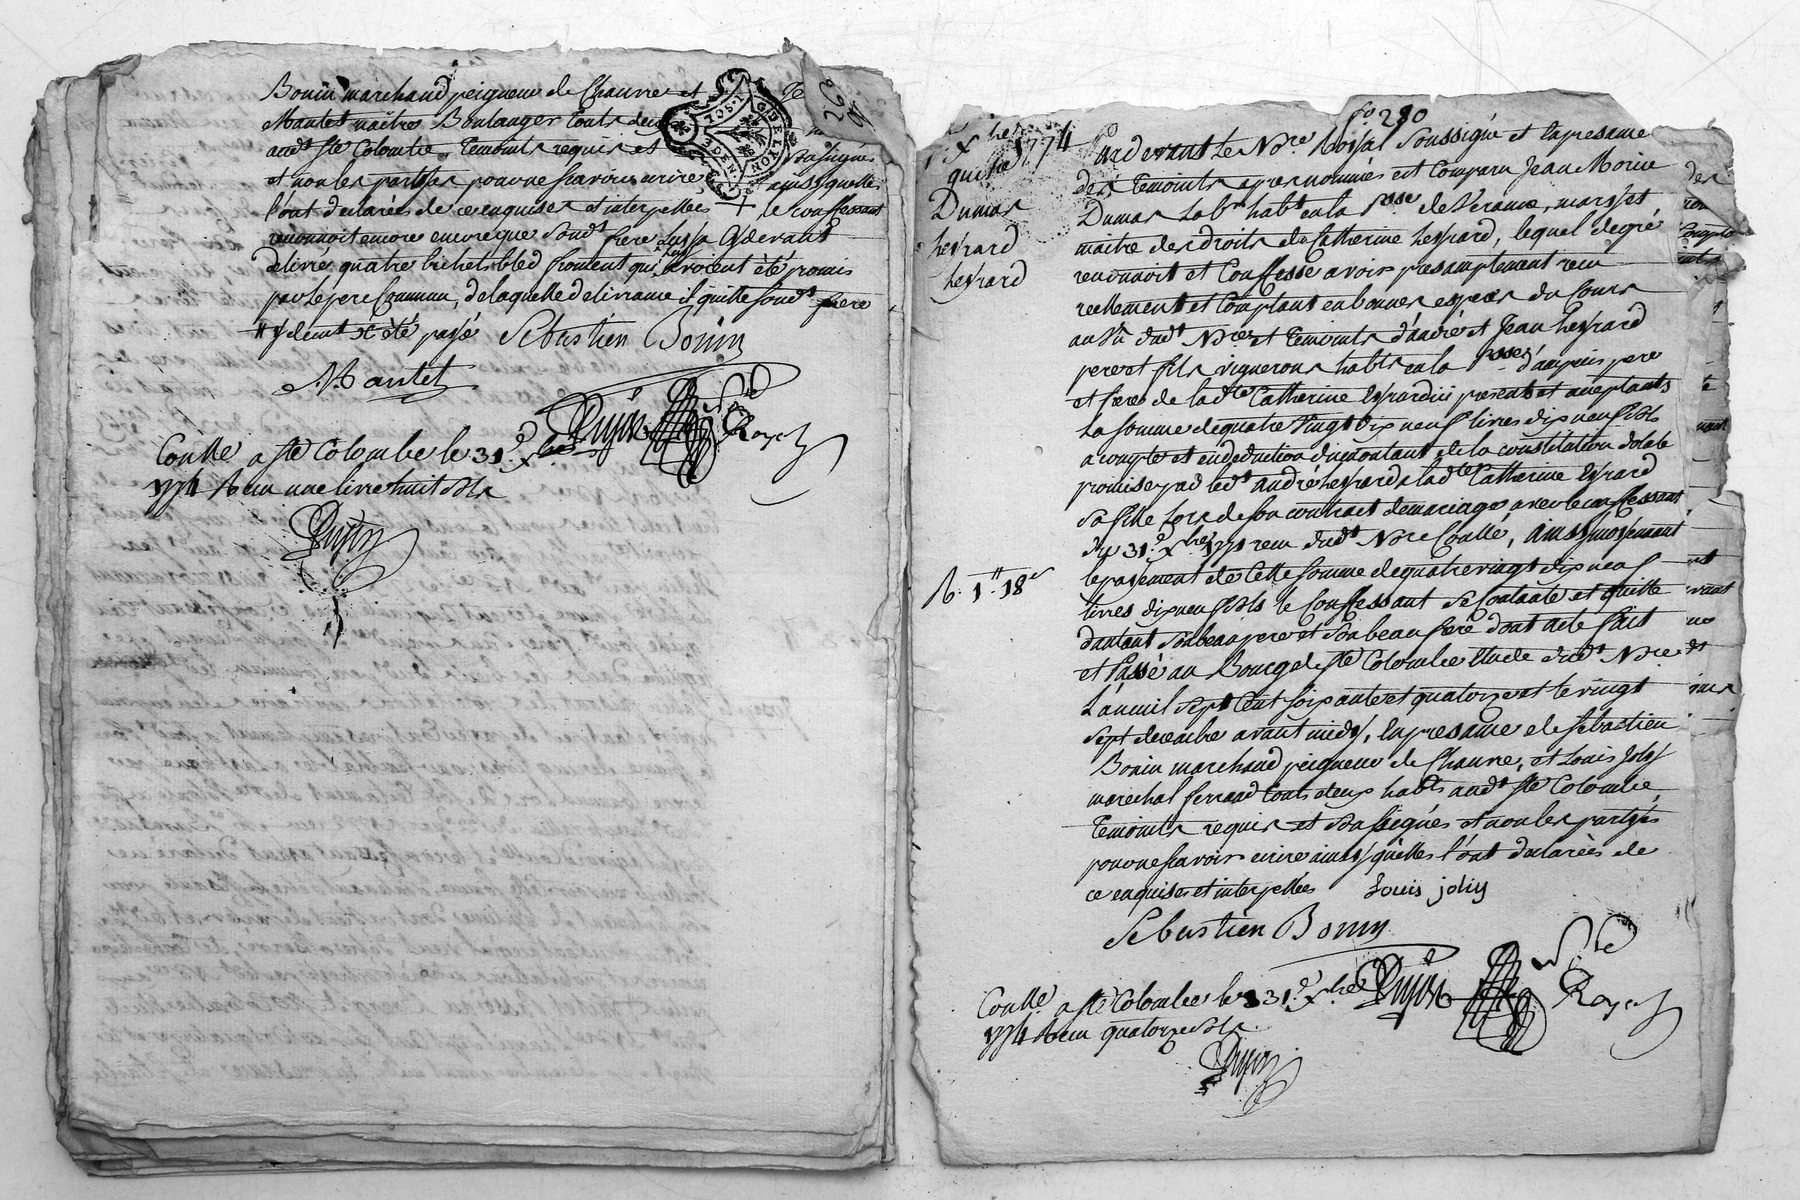 Bonin marchand peigneur de Chanvre et
Mantet maître Boulanger touts deux
audt Ste Colombe, temoints requis et soussignés
et non les parties pour ne scavoir ecrire ainsy quelles
l'ont declarées de ce enquises et interpellées + le confessant
reconnoit encore que sondt frere luy a cydevant
delivré quatre bichets bled froment qui luy avoient été promis
par le pere Commun, de laquelle delivrance il quitte sondt frere
été payé Sebastien Bonin
Mantet
Dujon Royer
Conllé a Ste Colombe le 31e xbre
1774 Reçu une livre huit sols
Dujon
fo 280
xbre 1774
quitte
Dumas
hessard
hessard
R. 1lt 18s
Pardevant le Nore Royal Soussigné et En presance
des temoints apres nommés est Comparu Jean Marie
Dumas Labr habt en la Psse de Veranne, mary et
maitre des droits de Catherine hessard, lequel de gré
reconnoit et Confesse avoir presamptement reçu
reelement et Comptant en bonnes especes du Cours
au Vû dudt Nore et temoints d'andré et Jean hessard
pere et fils vignerons habts en la Psse d'ampuis pere
et frere de ladte Catherine hessard icy presents et aceptants
La somme de quatre Vingt dix neuf livres dix neuf sols
a compte et en deduction du montant de la constitution dotale
promise par ledt andré hessard a ladte Catherine hessard
sa fille lors de son contract de mariage avec le confessant
du 31e xbre 1771 reçu dudt Nore Conllé, ainsy moyennant
le payement de Cette somme de quatre vingt dix neuf
livres dix neuf sols le Confessant se Contante et quitte
d'autant son beau pere et son beau frere dont acte fait
et Passé au Bourg de Ste Colombe Etude dudt Nore
L'an mil sept Cent soixante et quatorze et le vingt
sept decembre avant midy, En presance de Sebastien
Bonin marchand peigneur de Chanvre, et Louis Joly
marechal ferrand touts deux habts audt Ste Colombe,
temoints requis et soussignés et non les parties
pour ne scavoir ecrire ainsy quelles l'ont declarées de
ce enquises et interpellées Louis joliy
Sebastien Bonin
Dujon Royer
Conllé a Ste Colombe le 31e xbre
1774 Reçu quatorze sols.
Dujon